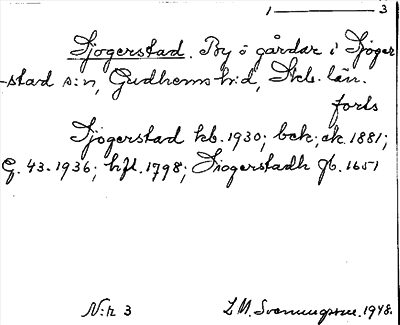 1 ——— 3
Sjögerstad. By o gårdar i Sjöger
-stad s:n, Gudhems h:d, Skb. län.
forts
Sjögerstad kb. 1930; bek; ek. 1881;
G. 43. 1936; hfl. 1798; Siogerstadh gb. 1651
N:r 3 L.M. Svenungsson. 1948.